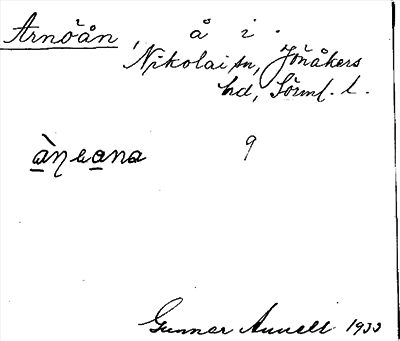 Arnöån, å i.
Nikolai sn, Jönåkers
hd, Sörml. l.
àŋɐana 9
Gunnar Annell 1933